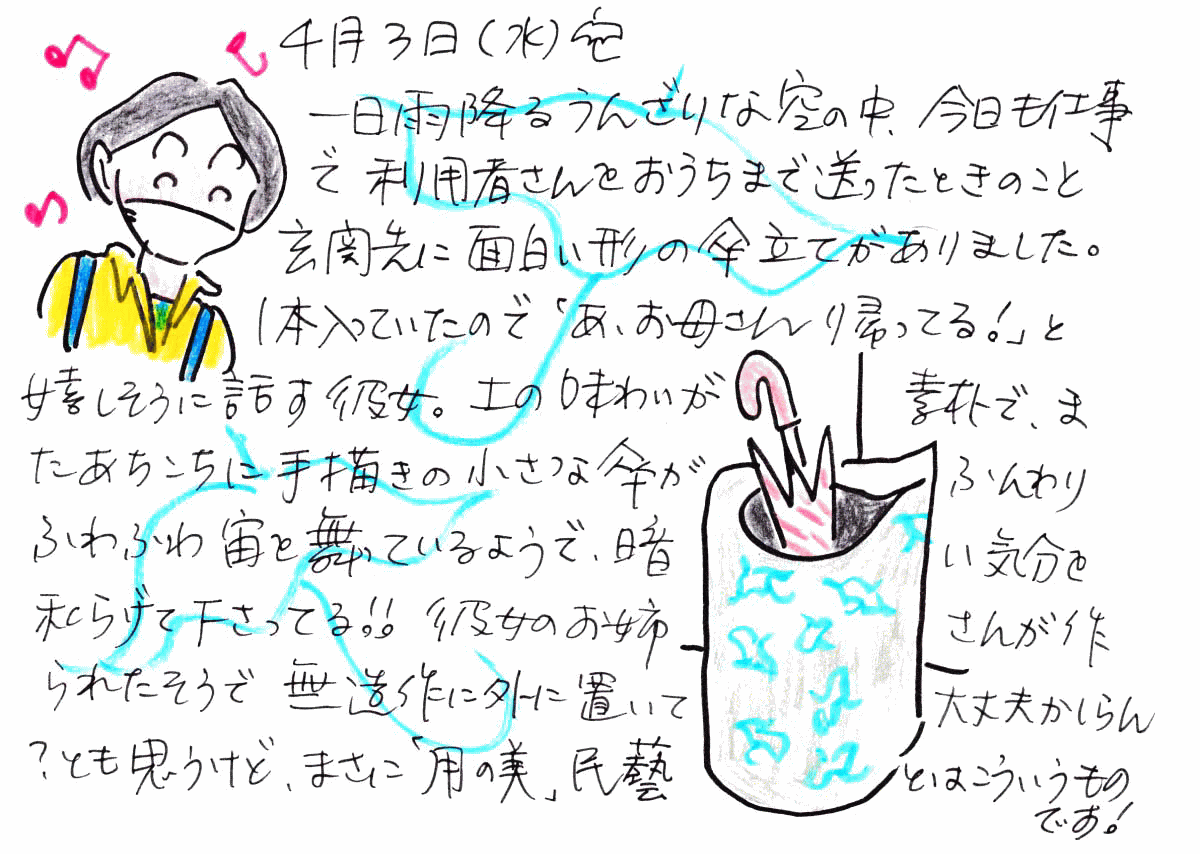 4月3日(水)
一日雨降るうんざりな空の中、今日も仕事
で利用者さんをおうちまで送ったときのこと
玄関先に面白い形の傘立てがありました。
1本入っていたので「あ、お母さん帰ってる!」と
嬉しそうに話す彼女。土の味わいが素朴で、ま
たあちこちに手描きの小さな傘がふんわり
ふわふわ宙を舞っているようで、暗い気分を
和らげて下さってる!!彼女のお姉さんが作
られたそうで無造作に外に置いて大丈夫かしらん
?とも思うけど、まさに「用の美」民藝とはこういうもの
です!